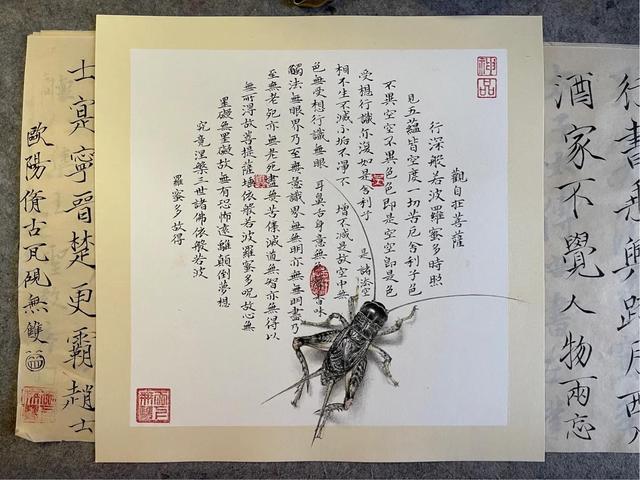 行書
踏月西
酒家不覺人物兩忘
神品
觀自在菩薩
行深般若波羅蜜多時照
見五蘊皆空度一切苦厄舍利子色
不異空空不異色色即是空空即是色
受想行識亦復如是舍利子 是諸法空
相不生不滅不垢不淨不 增不減是故空中無
色無受想行識無眼 耳鼻舌身意無色聲香味
觸法無眼界乃至無意識界無無明亦無無明盡乃
至無老死亦無老死盡無苦集滅道無智亦無得以
無所得故菩提薩埵依般若波羅蜜多呪故心無
罣礙無罣礙故無有恐怖遠離顛倒夢想
究竟涅槃三世諸佛依般若波
羅蜜多故得
士寔寧晉楚更霸趙
歐陽脩古瓦硯無雙